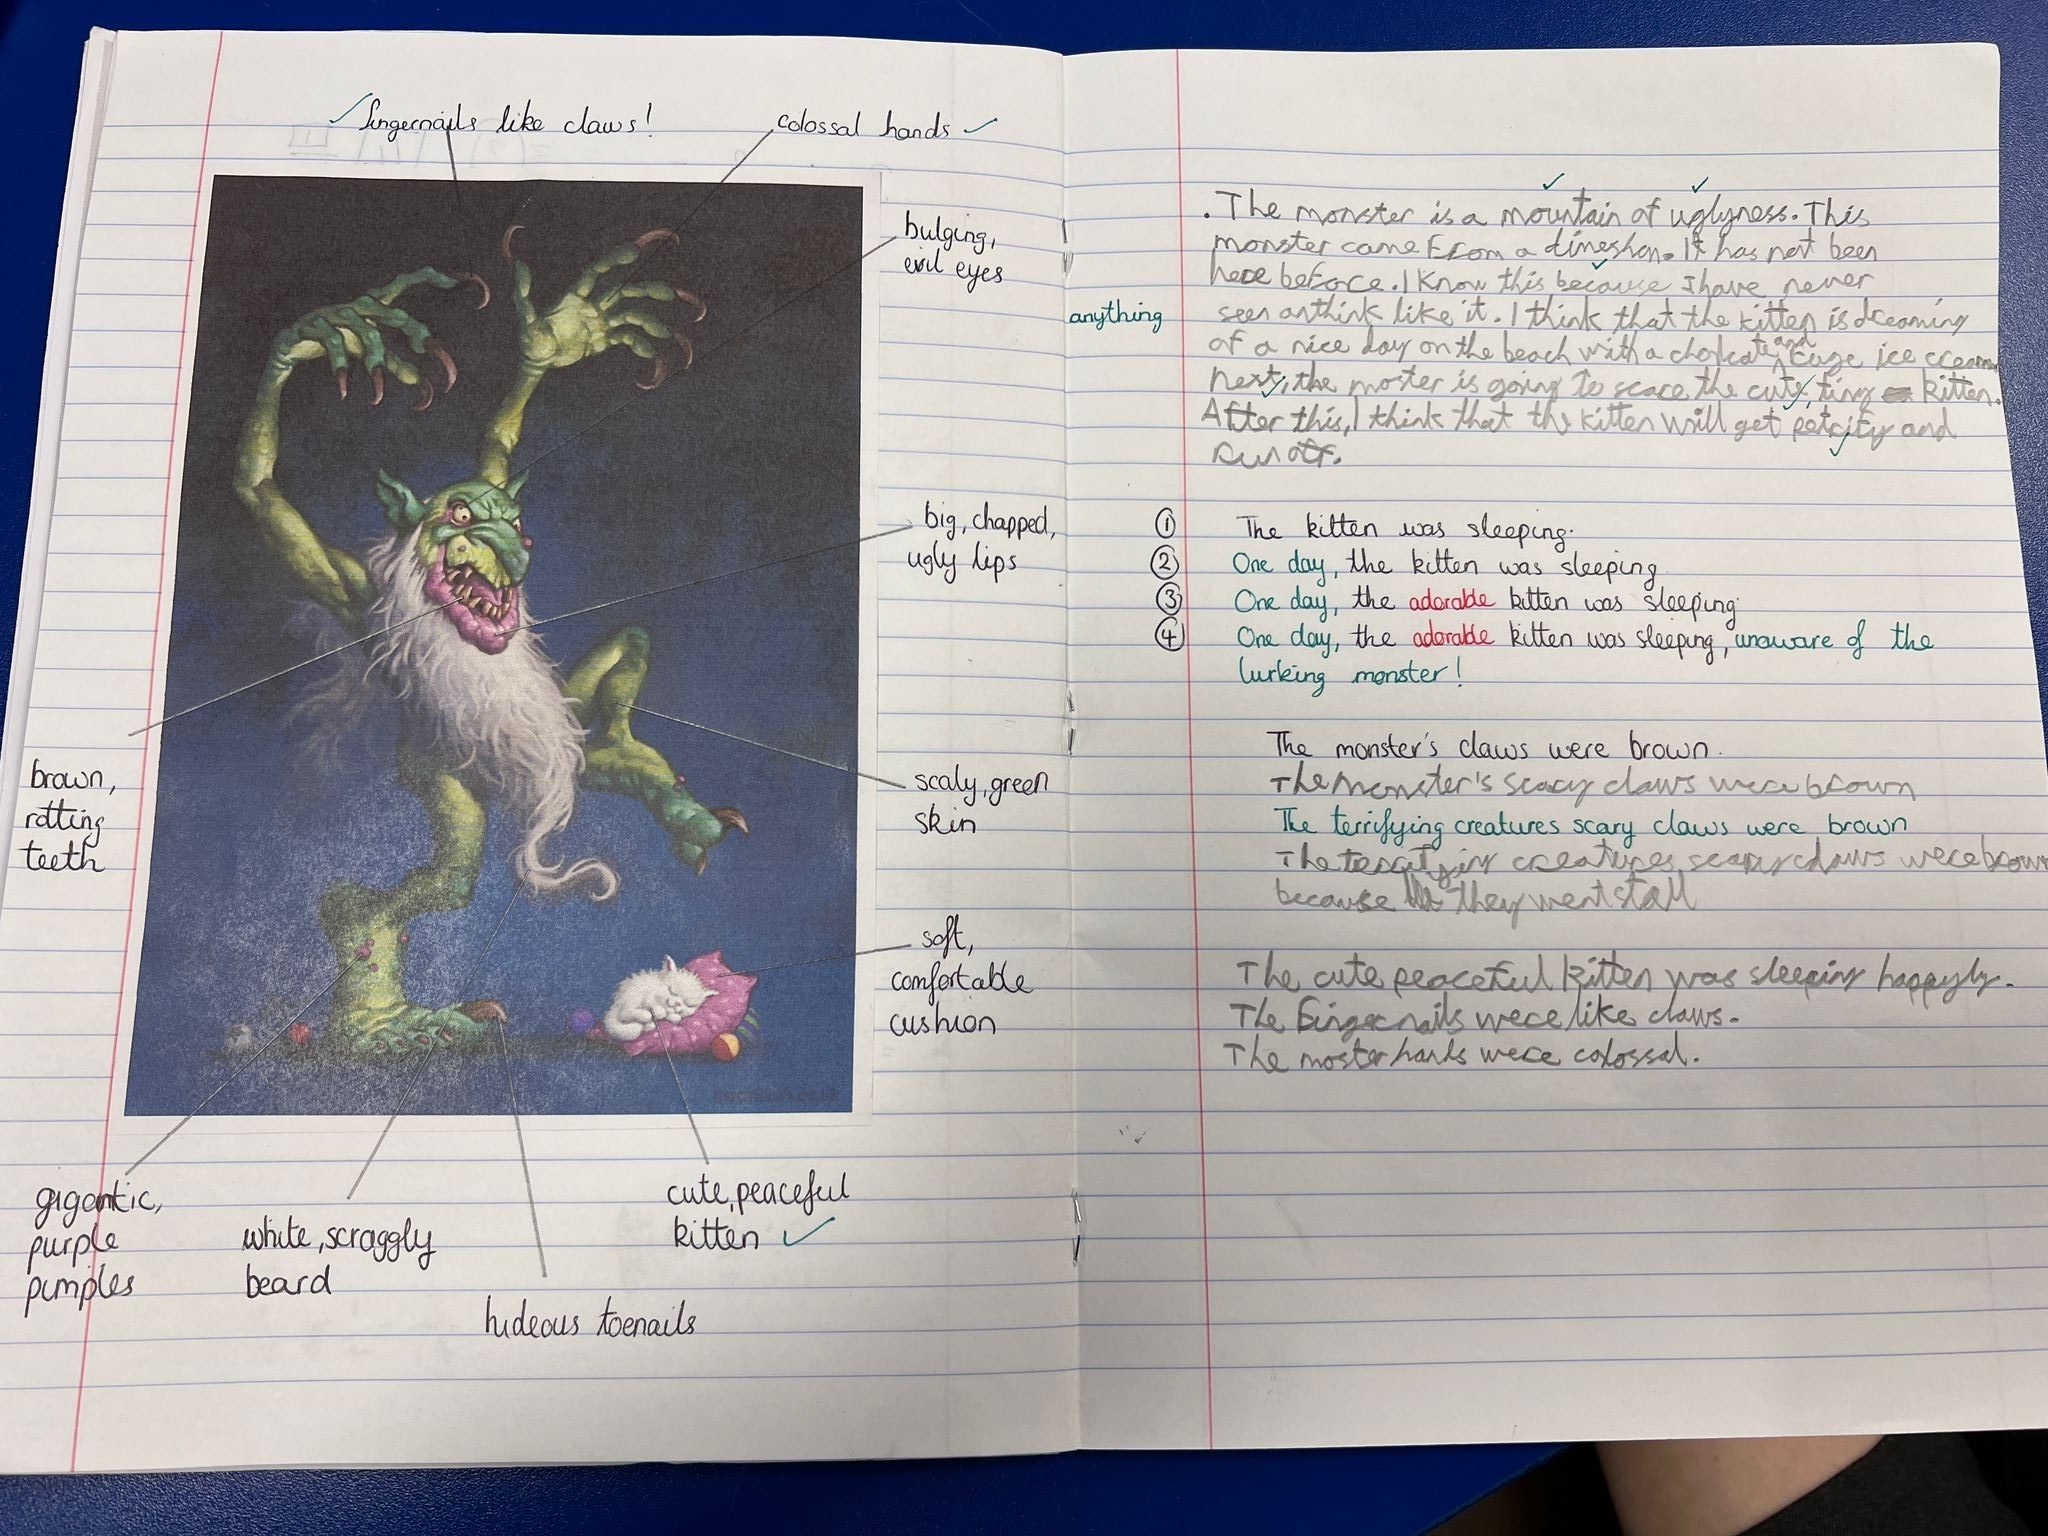 fingernails like claws!
colossal hands
bulging,
evil eyes
big, chapped,
ugly lips
brown,
rotting
teeth
scaly, green
skin
soft,
comfortable
cushion
gigantic,
purple
pimples
white, scraggly
beard
hideous toenails
cute, peaceful
kitten
. The monster is a mountain of uglyness. This
monster came From a dineshon. It has not been
here before. I Know this because I have never
anything
seen anthink like it. I think that the kitten is dreaming
of a nice day on the beach with a and ice cream
Next, the moster is going to scare the cute, tiny kitten.
After this, I think that the kitten will get and
run off.
① The kitten was sleeping.
② One day, the kitten was sleeping
③ One day, the adorable kitten was sleeping
④ One day, the adorable kitten was sleeping, unaware of the
lurking monster!
The monster's claws were brown.
The Monster's scary claws were brown
The terrifying creatures scary claws were brown
The creatures scary claws were brown
because they
The cute peaceful kitten was sleeping happyly.
The Fingernails were like claws.
The moster hands were colossal.